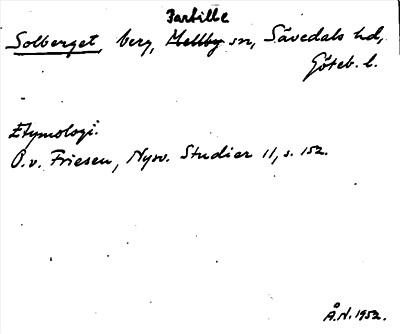 Partille
Solberget, berg, Mellby sn, Sävedals hd,
Göteb. l.
Etymologi:
O.v. Friesen, Nysv. Studier 11, s. 152.
Å.N. 1952.